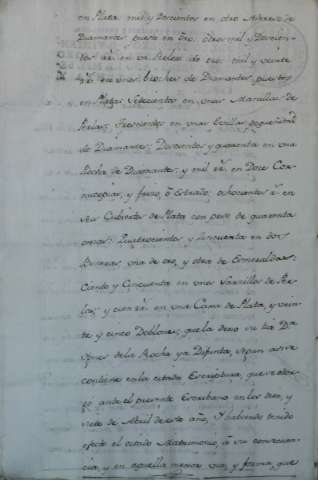 en Plata mil y Doscientos en otro Aderezo de
Diamantes puesto en oro; dos mil y Doscien-
tos r.s en un Relox de oro; mil y veinte
r.s en unos broches de Diamantes, puestos
en Plata; Setecientos en unas Manillas de
Perlas; Trescientos en unas evillas pequeñas
de Diamantes; Doscientos y quarenta en una
Rocha de Diamantes; y mil r.s en Doce Cor-
nucopias, y ochocientos r.s en
seis Cubiertos de Plata con peso de quarenta
onzas; Quatrocientos y cinquenta en dos
una de oro, y otra de Esmeraldas;
Ciento y Cinquenta en unos Sarcillos de Per-
las; y cien r.s en una Caxa de Plata, y vein-
te y cinco Doblones, que la dexo su tia D.a
de la Rocha ya Difunta, segun asi se
contiene en la citada Escriptura, que se otor-
gó ante el presente Escribano en los dias, y
siete de Abril de este año, Y habiendo tenido
efecto el citado Matrimonio, á su consequen-
cia, y en aquella menor via, y forma, que